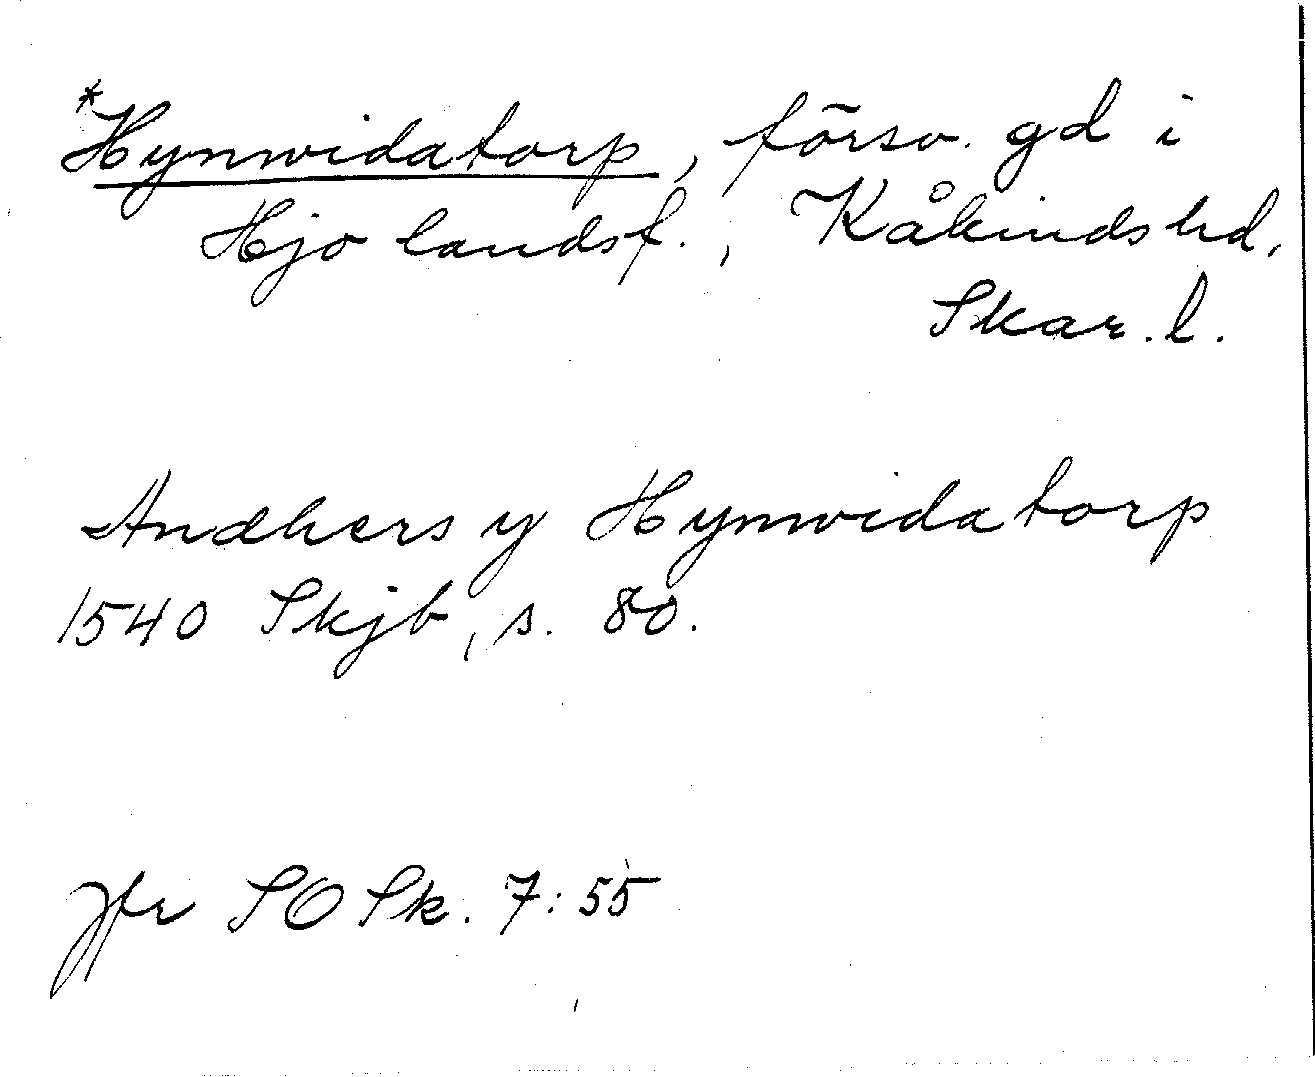 *Hynwidatorp, försv. gd i
Hjo landsf., Kåkinds hd,
Skar. l.
Andhers y Hynwidatorp
1540 Skjb, s. 80.
Jfr SOSk. 7:55